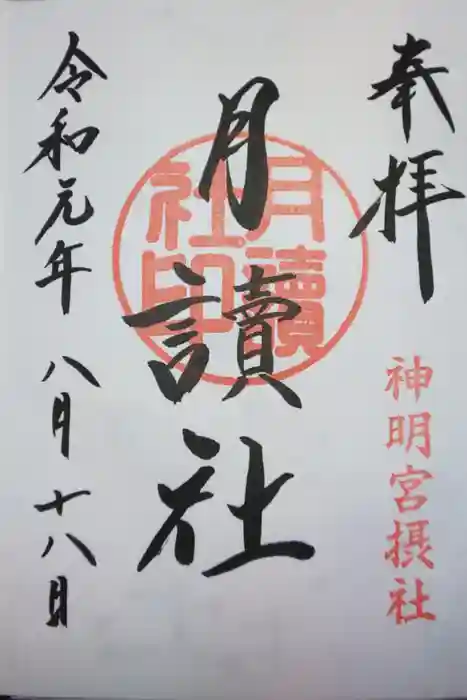 奉拝
神明宮摂社
月讀社
月讀
社印
令和元年八月十八日